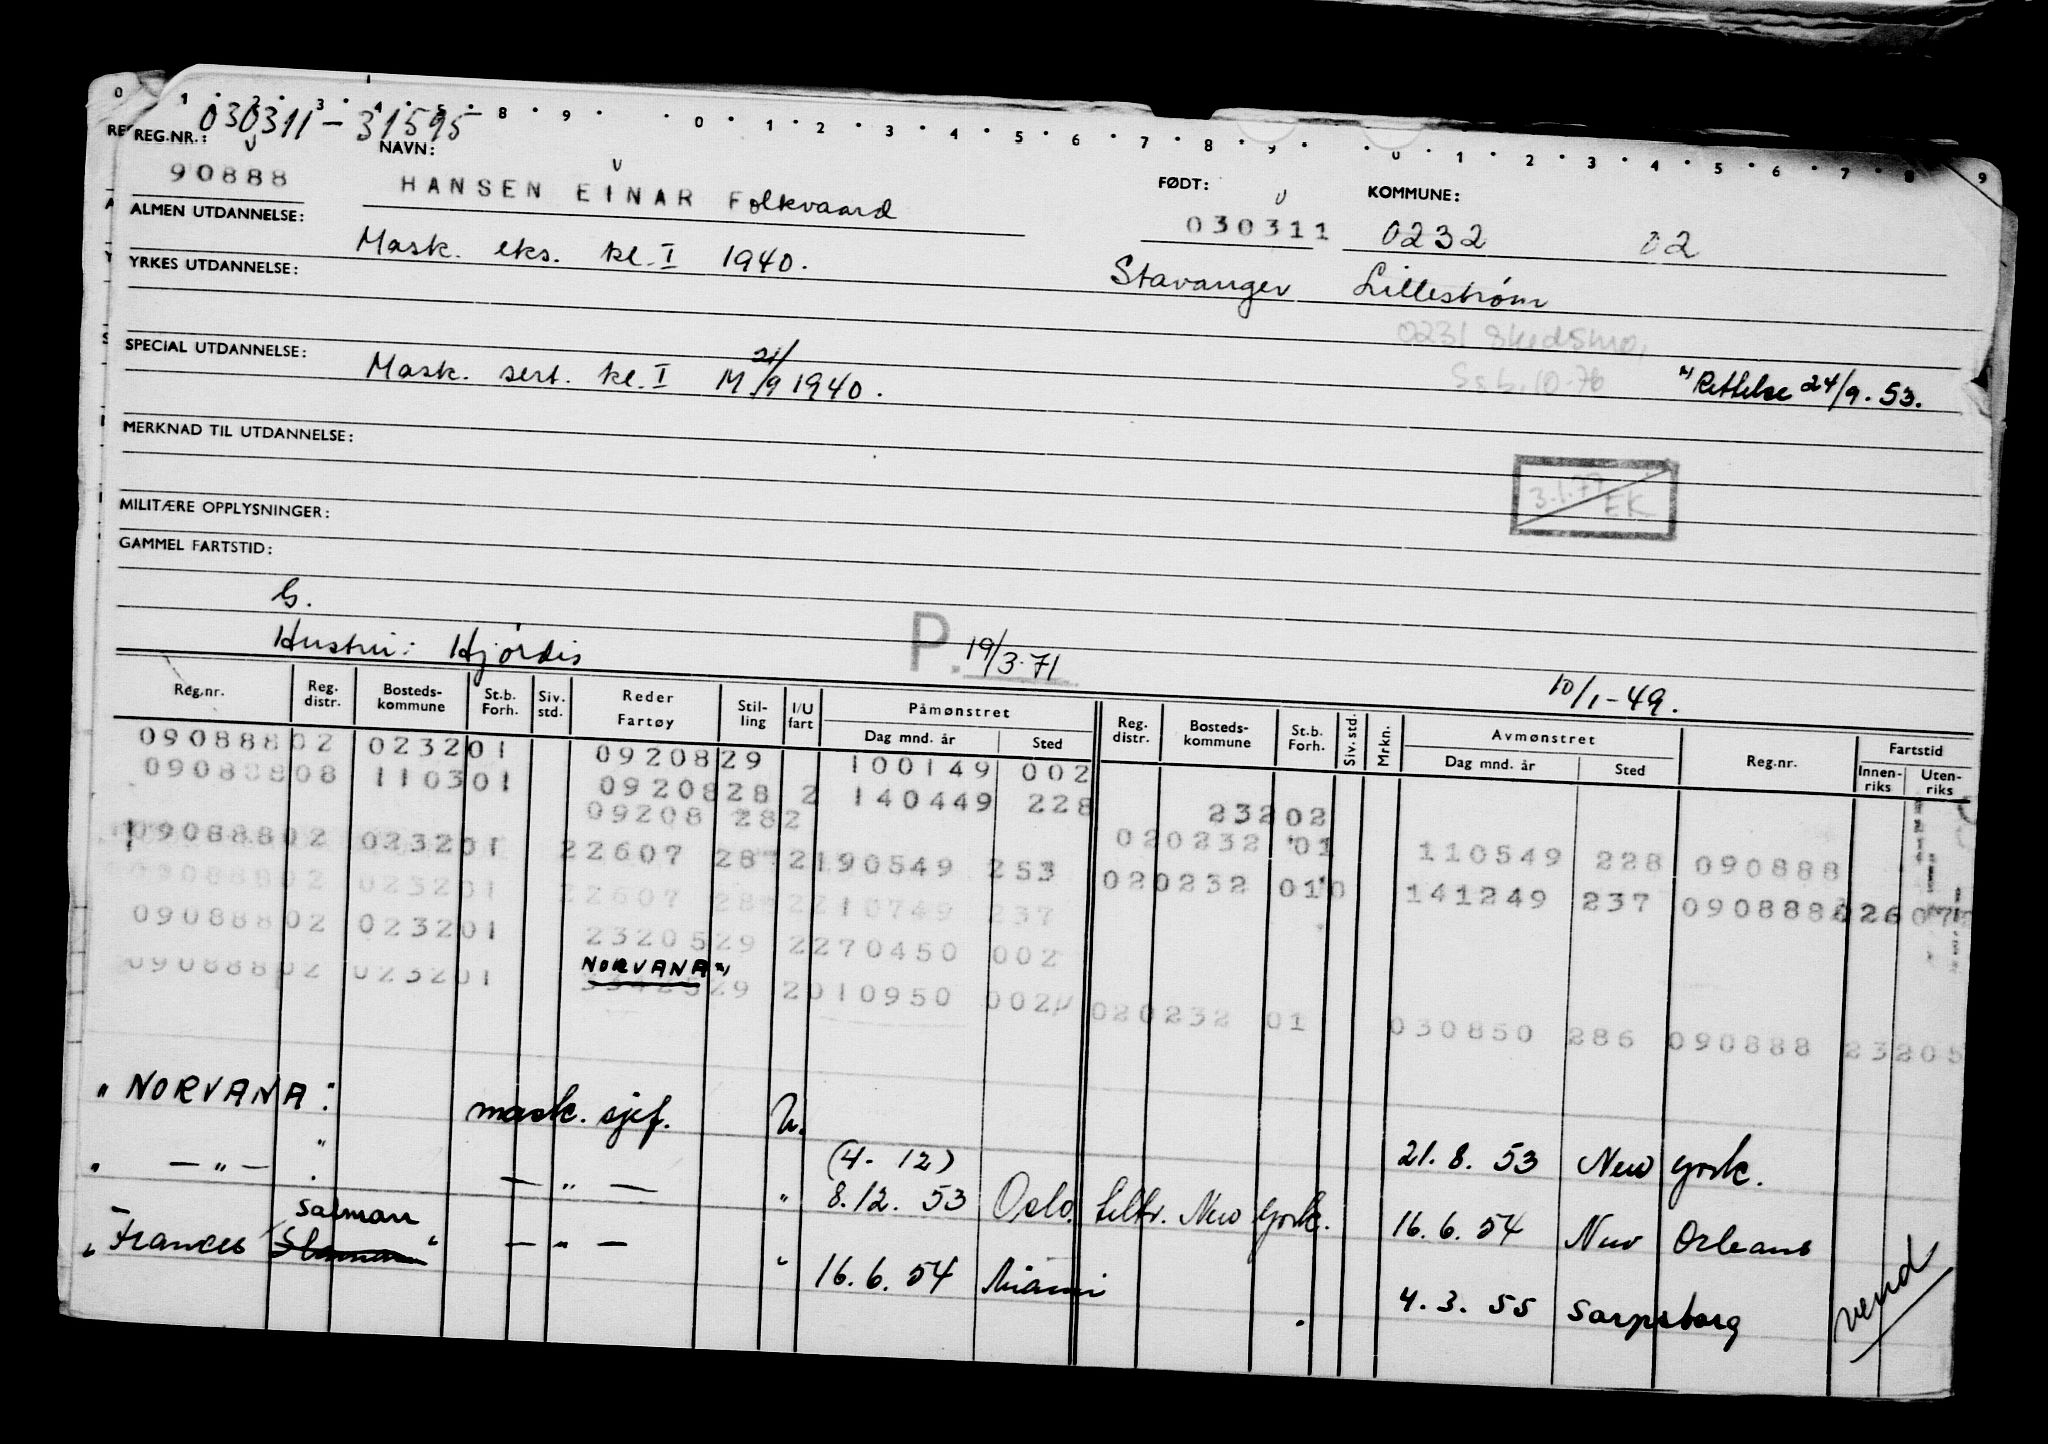 0 1 2 3 4 5 8 9 0 1 2 3 4 5 6 7 8 9 0 1 2 3 4 5 6 7 8 9
030311-31595
REG.NR.: NAVN: FØDT: KOMMUNE:
90888 HANSEN EINAR Folkvaard 030311 0232 02
ALMEN UTDANNELSE:
Mask. eks. kl. I 1940. Stavanger Lillestrøm
YRKES UTDANNELSE:
0231 Skedsmo,
Ssb. 10-76
SPECIAL UTDANNELSE:
Mask. sert. kl. I M 21/9 1940. x) Rettelse 24/9. 53.
MERKNAD TIL UTDANNELSE:
3.1.77 EK
MILITÆRE OPPLYSNINGER:
GAMMEL FARTSTID:
G.
Hustru: Hjórdis P. 19/3.71 10/1-49.
Reg.nr. Reg. distr. Bosteds-kommune St.b. Forh. Siv. std. Reder Fartøy Stil-ling I/U fart Påmønstret Dag mnd. år Sted Reg. distr. Bosteds-kommune St.b. Forh. Siv. std. Mrkn. Avmønstret Dag mnd. år Sted Reg.nr. Fartstid Innen-riks Uten-riks
09088802 023201 0920829 100149 002
09088808 110301 0920828 2 140449 228
09208 282 23202
09088802 023201 22607 28 2190549 253 020232 01 110549 228 090888
09088802 023201 22607 28 2210749 237 020232 010 141249 237 090888 026
09088802 023201 2320529 2270450 002
NORVANA x)
09088802 023201 3342529 2010950 002 020232 01 030850 286 090888 23205
" NORVANA " mask. sjef. U. 21. 8. 53 New York.
(4. 12)
" — " — " — " — " 8. 12. 53 Oslo. tiltr. New York. 16. 6. 54 New Orleans
Salman
" Frances " — " — " 16. 6. 54 Miami 4. 3. 55 Sarpsborg
vend